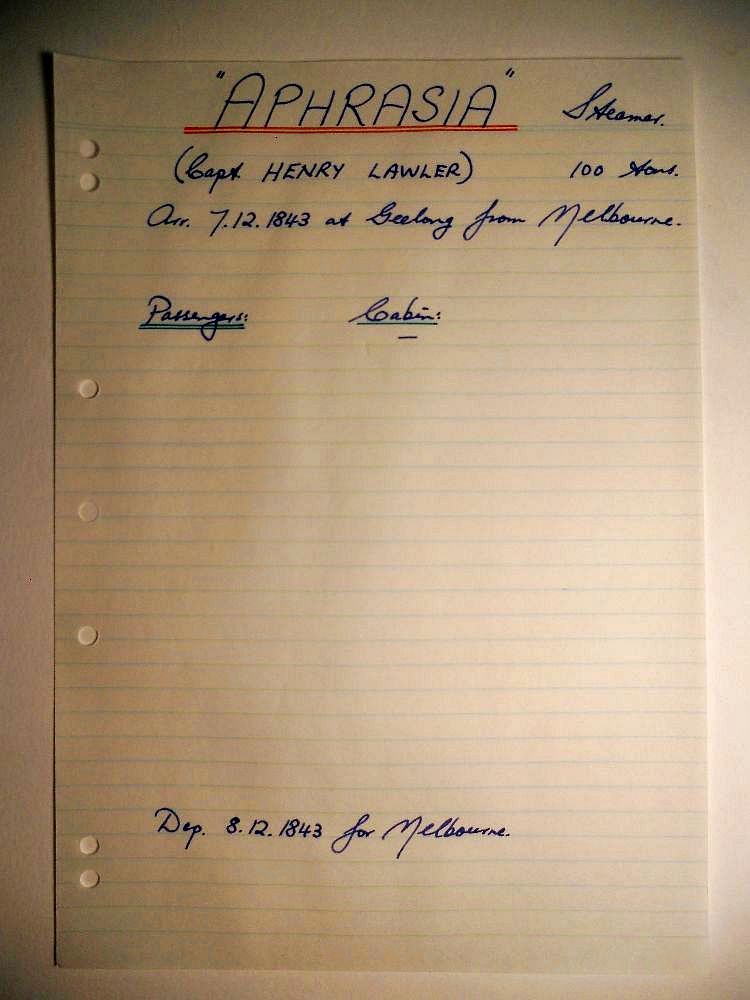 "APHRASIA" Steamer.
(Capt. HENRY LAWLER) 100 tons.
Arr. 7.12.1843 at Geelong from Melbourne.
Passengers: Cabin:
—
Dep. 8.12.1843 for Melbourne.